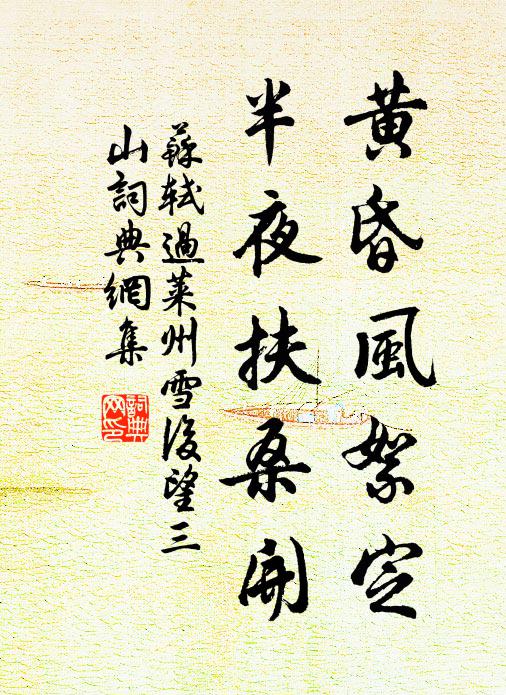 黄昏風絮定
半夜扶桑開
蘇軾過萊州雪後望三
山詞典網集
詞典網印